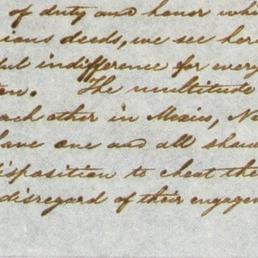 of duty and honor whi
ious deeds, we see her
ful indifference for every
The multitude
each other in Mexico, Ne
have one and all shaw
isposition to cheat the
disregard of their engagem